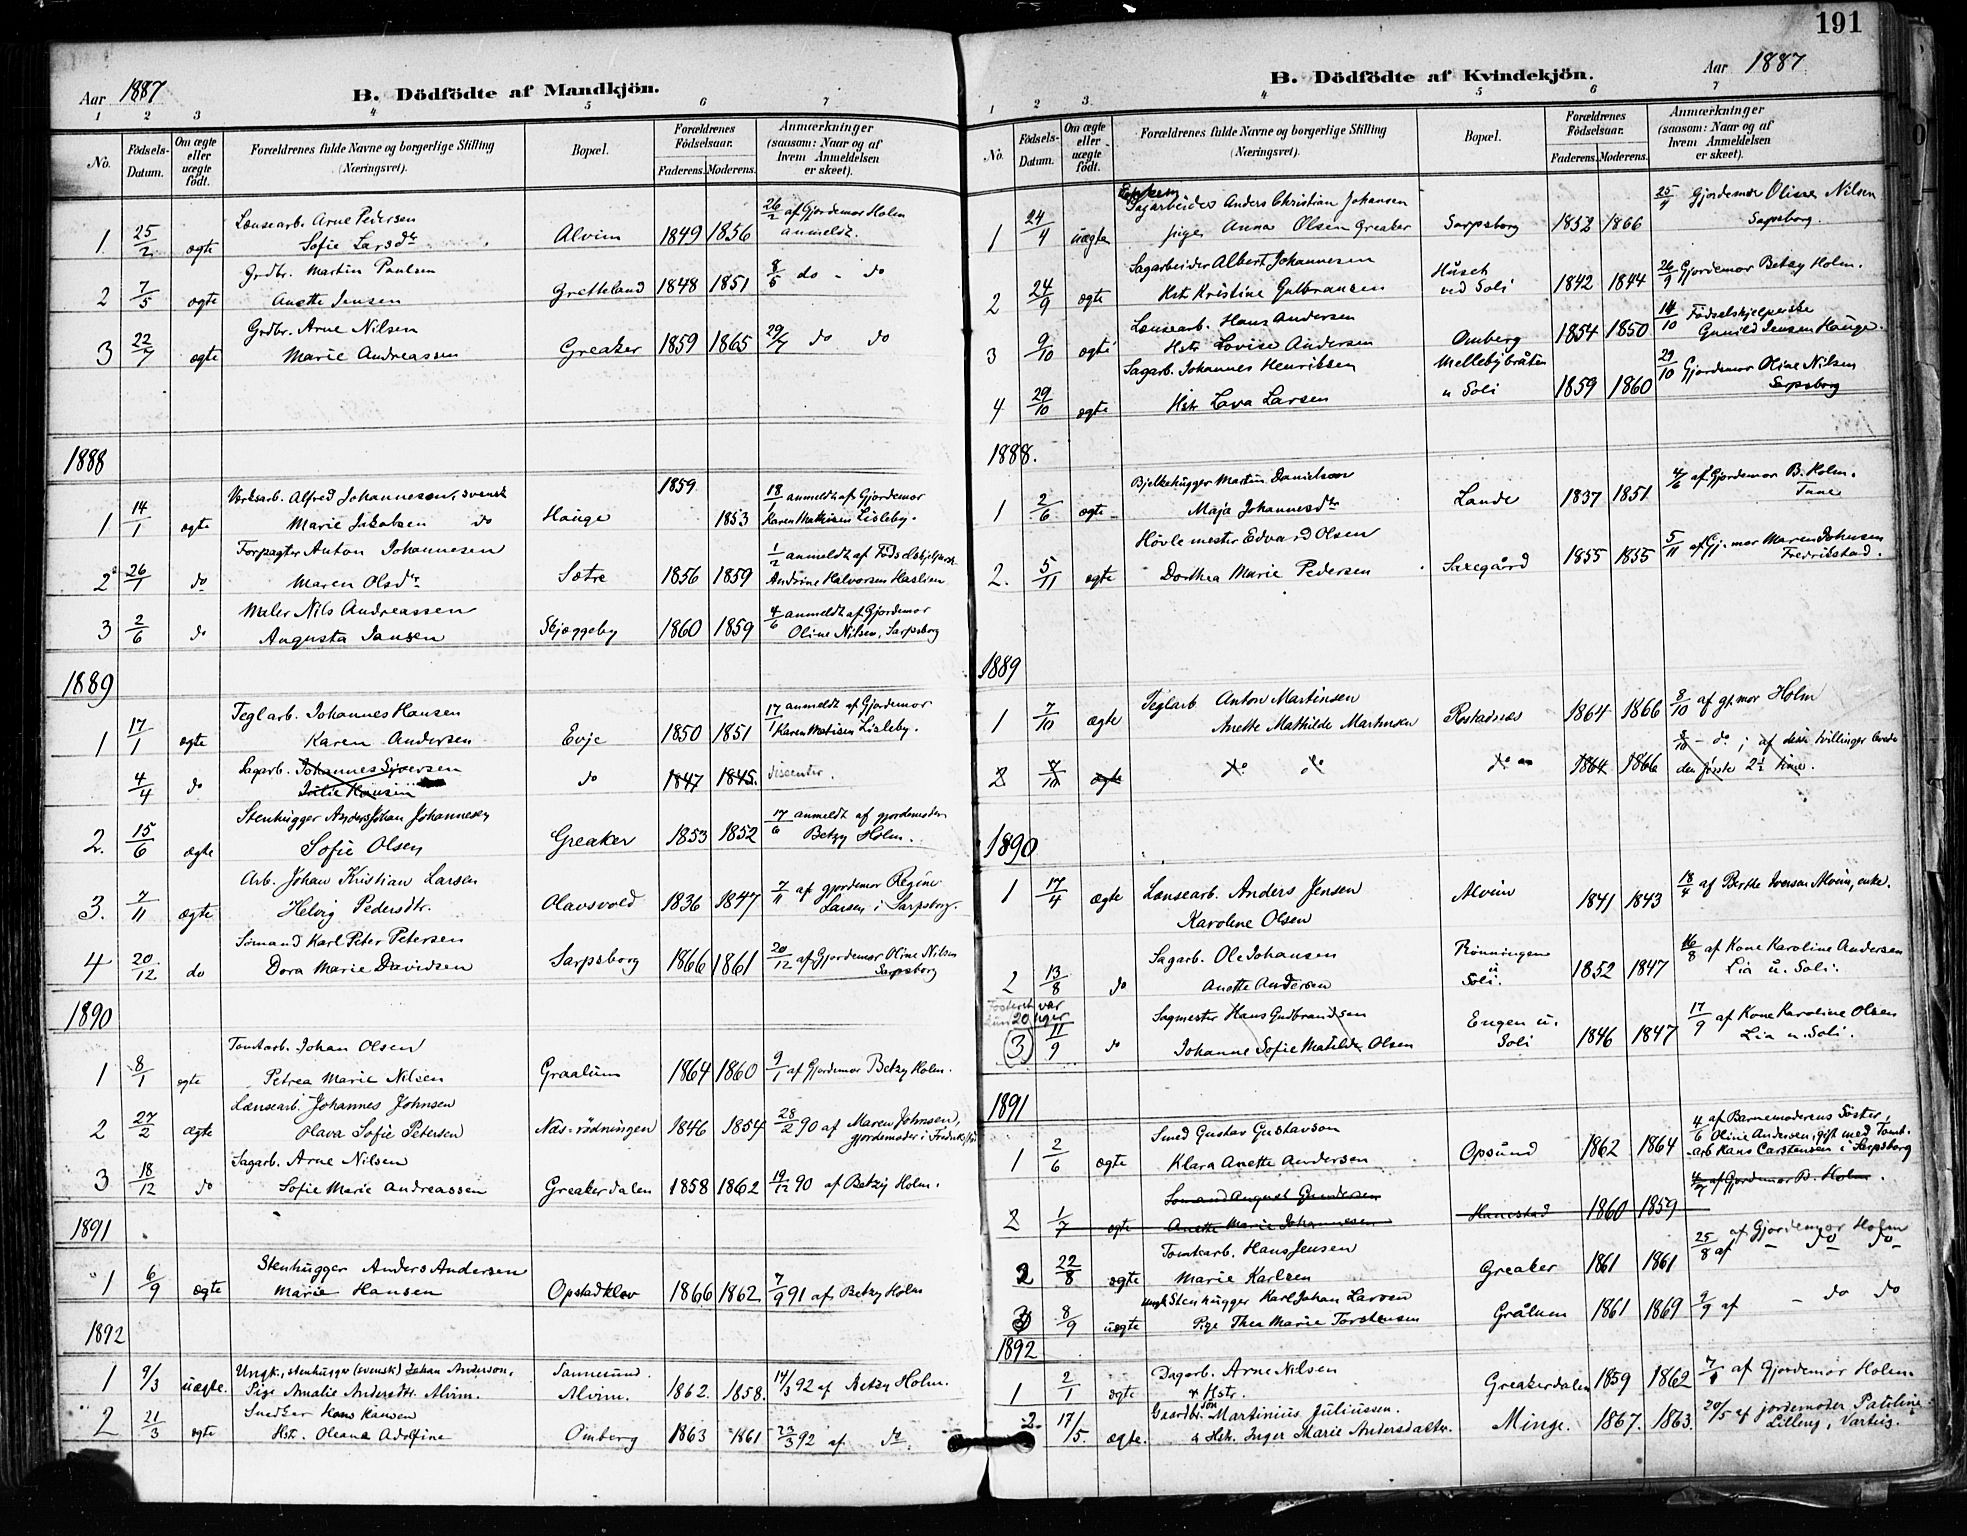 191
Aar 1887
B. Dödfödte af Mandkjön.
1 2 3 4 5 6 7
No.
Födsels-Datum.
Om ægte eller uægte födt.
Forældrenes fulde Navne og borgerlige Stilling (Næringsvei).
Bopæl.
Forældrenes Födselsaar.
Faderens. Moderens.
Anmærkninger (saasom: Naar og af hvem Anmeldelsen er skeet).
1 25/2 ægte Lænsearb. Arne Pedersen
Sofie Larsdtr Alvim 1849 1856 26/2 af Gjordemor Holm anmeldt.
2 7/5 ægte Grdbr. Martin Paulsen
Anette Jensen Gretteland 1848 1851 8/5 do - do
3 22/7 ægte Grdbr. Arne Nilsen
Marie Andreassen Greaker 1859 1865 29/7 do do
1888
1 14/1 ægte Verksarb. Alfred Johannesson, svensk
Marie Jakobsen do Hauge 1859 1853 18/1 anmeldt af Gjordemor
Karen Mathisen Lisleby.
2 26/1 do Forpagter Anton Johannesen
Maren Olsdtr Sætre 1856 1859 1/2 anmeldt af Fødselshjelpersk
Andrine Halvorsen Haslien
3 2/6 do Maler Nils Andreassen
Augusta Jansen Skjæggeby 1860 1859 4/6 anmeldt af Gjordemor
Oline Nilsen, Sarpsborg
1889
1 17/1 ægte Teglarb. Johannes Hansen
Karen Andersen Evje 1850 1851 17/1 anmeldt af Gjordemor
Karen Matisen Lisleby.
4/4 do Sagarb. Johannes Sjversen
Julie Hansen do 1847 1845. dissenter.
2. 15/6 ægte Stenhugger Anders Johan Johannesen
Sofie Olsen Greaker 1853 1852 17/6 anmeldt af gjordemoder
Betzy Holm.
3. 7/11 ægte Arb. Johan Kristian Larsen
Helvig Pedersdtr. Olavsvold 1836 1847 7/11 af gjordemor Regine
Larsen i Sarpsborg.
4 20/12 do Sömand Karl Peter Petersen
Dora Marie Davidsen Sarpsborg 1866 1861 20/12 af Gjordemor Oline Nilsen
Sarpsborg
1890
1 8/1 ægte Tomtarb. Johan Olsen
Petrea Marie Nilsen Graalum 1864 1860 9/1 af Gjordemor Betzy Holm.
2 27/2 ægte Lænsearb. Johannes Johnsen
Olava Sofie Petersen Næs-rödningen 1846 1854 28/2 90 af Maren Johnsen,
gjordemoder i Fredrikstad
3 18/12 do Sagarb. Arne Nilsen
Sofie Marie Andreassen Greakerdalen 1858 1862 19/12 90 af Betzy Holm.
1891
1 6/9 ægte Stenhugger Anders Andersen
Marie Hansen Opstadklev 1866 1862 7/9 91 af Betzy Holm
1892
1 9/3 uægte. Ungk., stenhugger (svensk) Johan Anderson,
Pige Amalie Andersdtr. Alvim. Sannesund. Alvim. 1862. 1858. 14/3 92 af Betzy Holm.
2 21/3 ægte Snedker Hans Hansen
Hst. Oleana Adolfine Omberg 1863 1861 23/3 92 af do.
Aar 1887
B. Dödfödte af Kvindekjön.
1 2 3 4 5 6 7
No.
Födsels-Datum.
Om ægte eller uægte födt.
Forældrenes fulde Navne og borgerlige Stilling (Næringsvei).
Bopæl.
Forældrenes Födselsaar.
Faderens. Moderens.
Anmærkninger (saasom: Naar og af hvem Anmeldelsen er skeet).
1 24/4 uægte Sagarbeider Anders Christian Johansen
pige Anna Olsen Greaker Sarpsborg 1852 1866 25/4 Gjordemor Oline Nilsen
Sarpsborg.
2 24/9 ægte Sagarbeider Albert Johannesen
Hst Kristine Gulbransen Huset ved Soli 1842 1844 26/9 Gjordemor Betzy Holm.
3 9/10 ægte Lænsearb. Hans Andersen
Hstr Lovise Andersen Omberg 1854 1850 14/10 Födselshjelperske
Gunild Jensen Hauge.
4 29/10 ægte Sagarb. Johannes Henriksen
Hstr Lava Larsen Mellebybråten u Soli 1859 1860 29/10 Gjordemor Oline Nilsen
Sarpsborg
1888.
1 2/6 ægte Bjelkehugger Martin Danielsson
Maja Johannesdtr Lande 1837 1851 4/6 af Gjordemor B. Holm.
Tune
2. 5/11 ægte Hövlemester Edvard Olsen
Dorthea Marie Pedersen Saxegård 1855 1855 5/11 af Gj.mor Maren Johnsen
Fredrikstad.
1889
1 7/10 ægte Teglarb Anton Martinsen
Anette Mathilde Martinsen Rostadnes 1864 1866 8/10 af gj.mor Holm
2 7/10 ægte do do do 1864 1866 8/10 - do; af disse tvillinger levede
den første 2½ time.
1890
1 17/4 ægte Lænsearb. Anders Jensen
Karoline Olsen Alvim 1841 1843 18/4 af Berthe Iversen Alvim, enke.
2 13/8 do Sagarb. Ole Johansen
Anette Andersen Rönningen u Soli. 1852 1847 16/8 af Kone Karoline Andersen
Lia u. Soli.
Fosteret var kun 20 uger
(3) 11/9 do Sagmester Hans Gudbrandsen
Johanne Sofie Matilde Olsen Engen u. Soli 1846 1847 17/9 af Kone Karoline Olsen
Lia u. Soli.
1891
1 2/6 ægte Smed Gustav Gustavson
Klara Anette Andersen Opsund 1862 1864 4/6 af Barnemoderens Söster,
Oline Andersen, gift med Tomt-
arb Hans Carstensen i Sarpsborg
2 1/7 ægte Sömand August Gundersen
Anette Marie Johannesen Hanestad 1860 1859 4/7 af Gjordemor B. Holm.
2 22/8 ægte Tomtearb. Hans Jensen
Marie Karlsen Greaker 1861 1861 25/8 af Gjordemor Holm
af - do do
3 8/9 uægte Ungk Stenhugger Karl Johan Larsen
Pige Thea Marie Torstensen Grålum 1861 1869 9/9 af - do do
1892
1 2/1 ægte Dagarb. Arne Nilsen
& Hstr. Greakerdalen 1859 1862 7/1 af Gjordemor Holm.
2. 17/5. ægte. Gaardbr.sön Martinius Juliussen.
& Hstr. Inger Marie Andersdatter. Minge. 1867. 1863. 20/5 af jordemoder Pauline
Lilleng, Varteig.